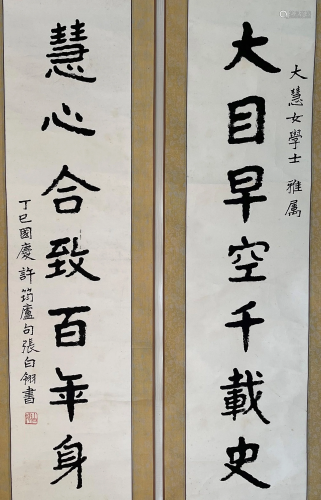 大慧女學士 雅屬
大目早空千載史
慧心合致百年身
丁巳國慶 許筠廬句 張白翎書